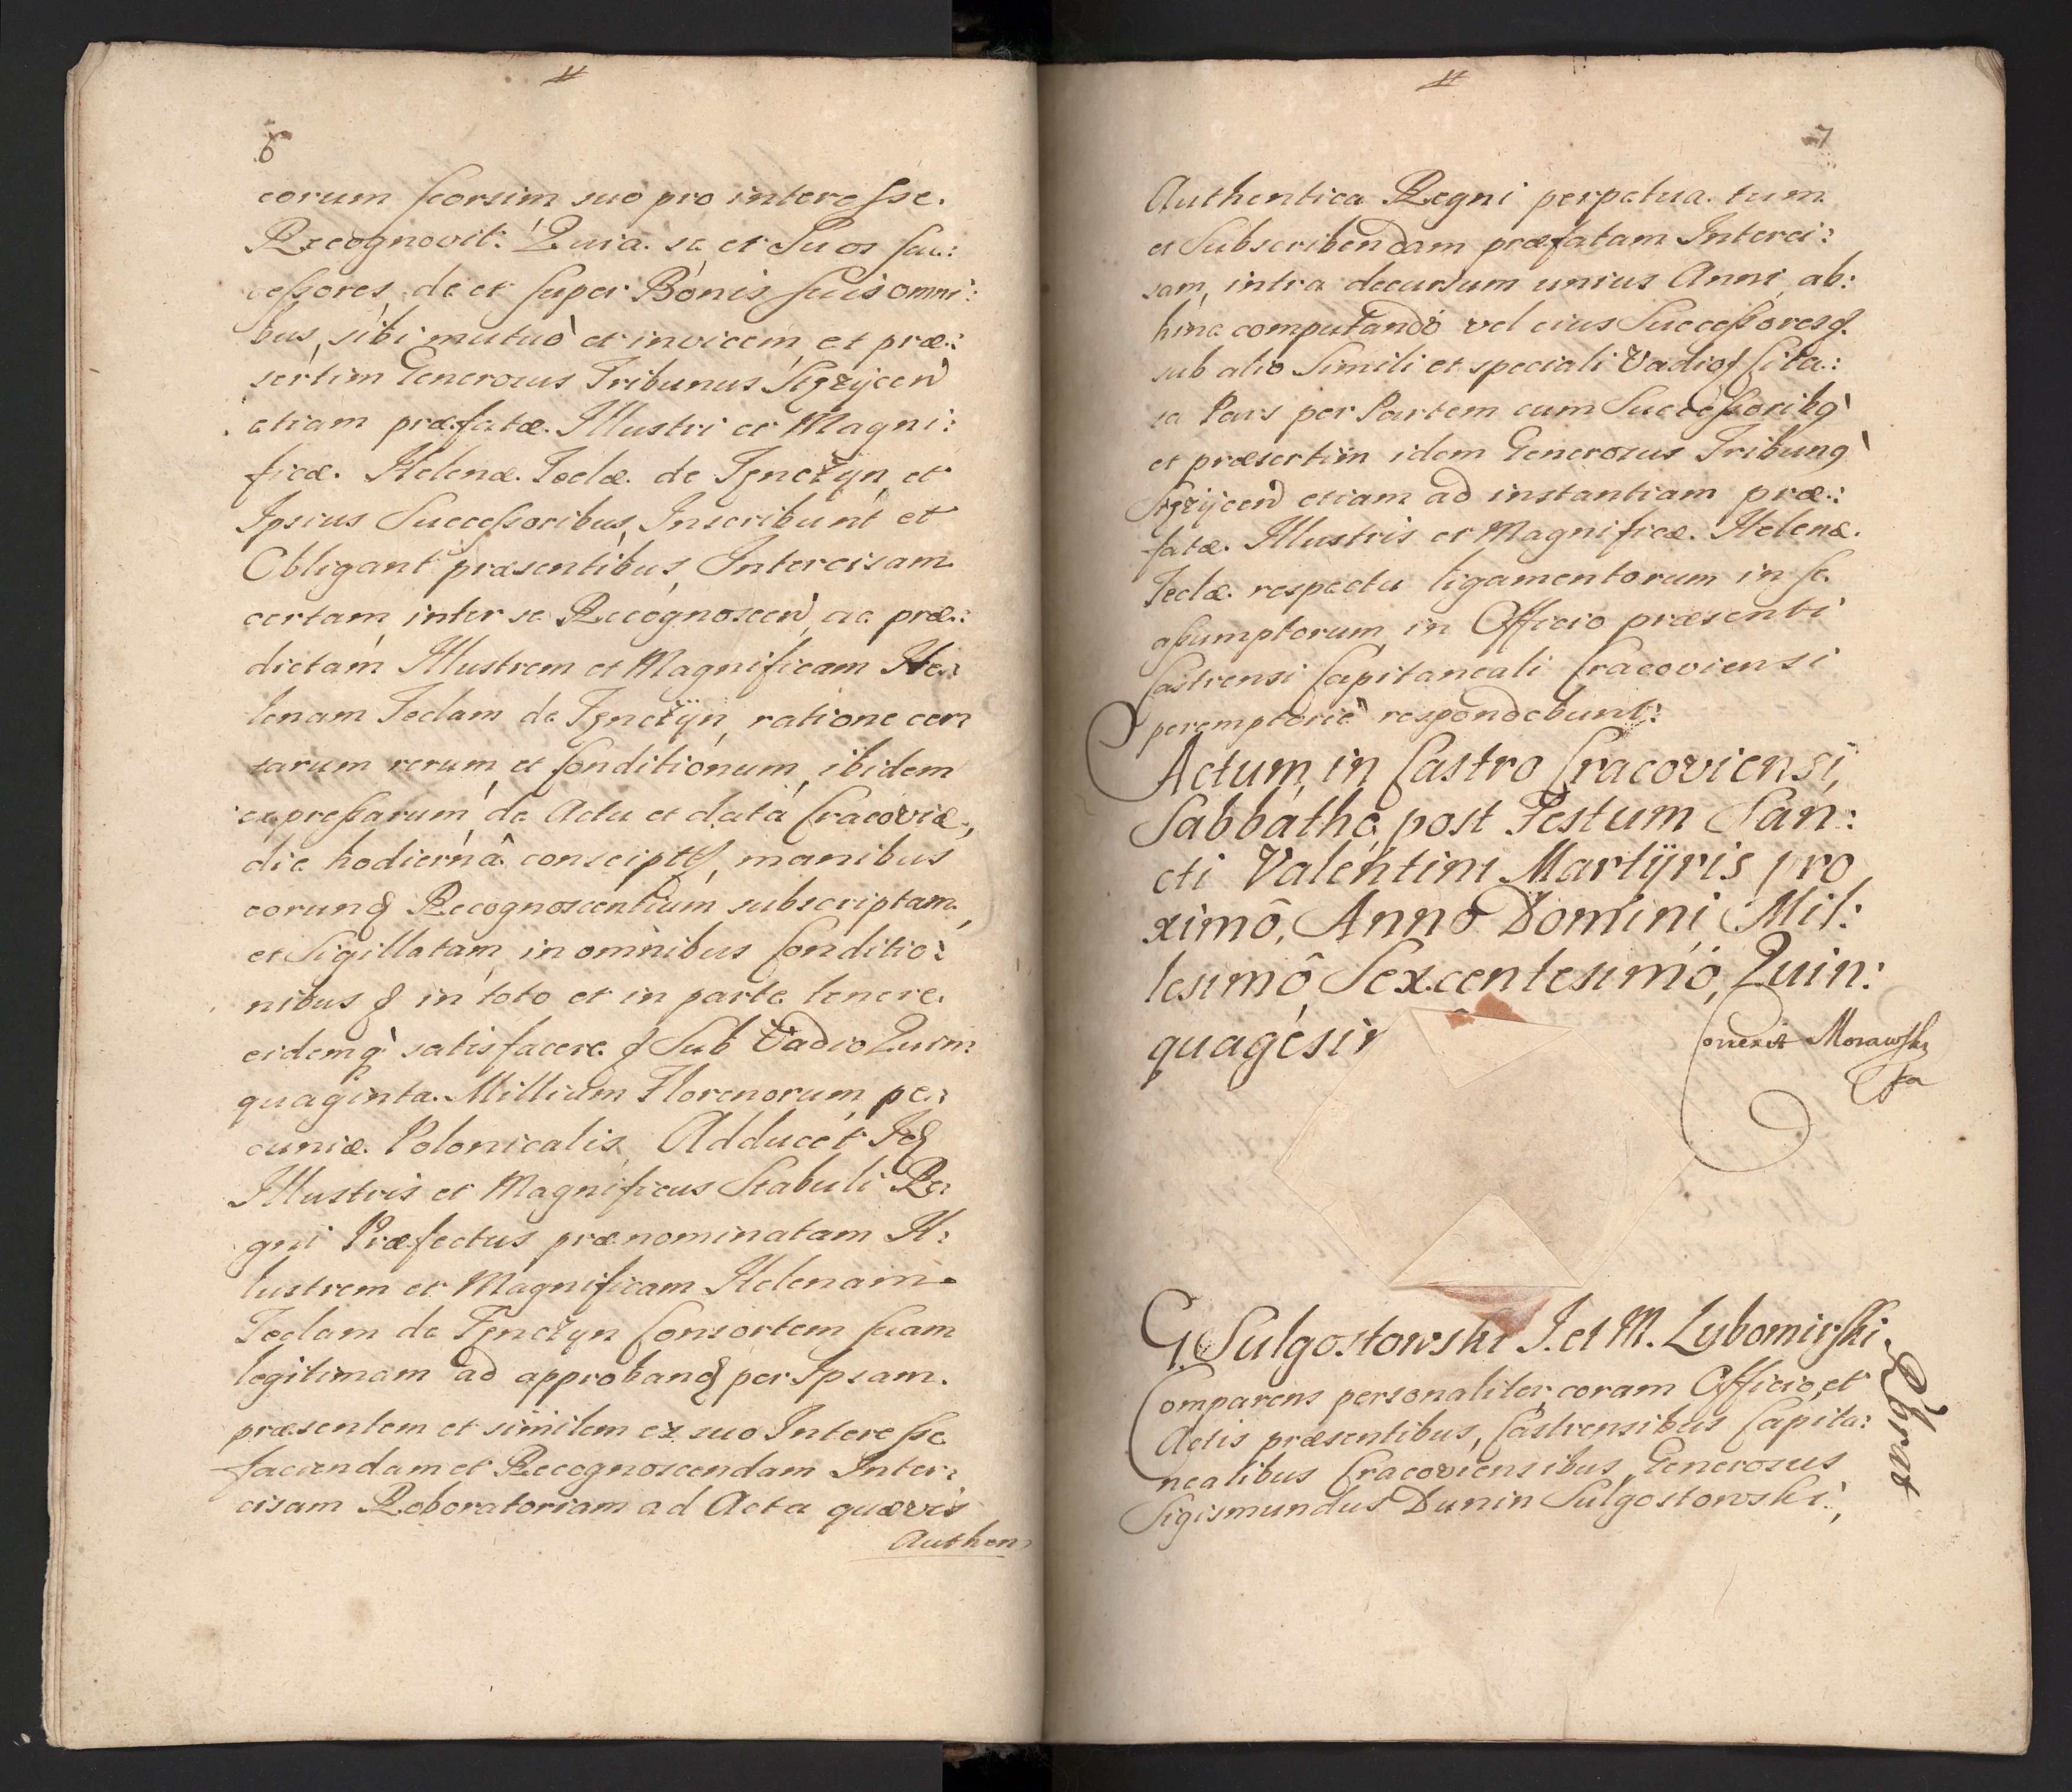 6
eorum seorsim suo pro interesse.
Recognovit: Quia se et Suos suc:
cessores, de et super Bonis suis omni:
bus, sibi mutuò et invicem, et præ:
sertim Generosus Tribunus Stęzÿcen
etiam præfatæ Illustri et Magni:
ficæ Helenæ Teclæ de Tęnczÿn, et
Ipsius Successoribus, Inscribunt et
Obligant præsentibus, Intercisam
certam inter se Recognoscen, ac præ:
dictam Illustrem et Magnificam He:
lenam Teclam de Tęnczÿn, ratione cer:
tarum rerum, et Conditionum, ibidem
expressarum, de Actu et datâ Cracoviæ,
die hodiernâ conscipt, manibus
eorunq Recognoscentium subscriptam,
et Sigillatam, in omnibus Conditio:
nibus q in toto et in parte tenere,
eidemq satisfacere q Sub Vadio Quin:
quaginta Millium Florenorum pe:
cuniæ Polonicalis. Adducet Idq
Illustris et Magnificus Stabuli Re:
gni Præfectus prænominatam Il:
lustrem et Magnificam Helenam
Teclam de Tęnczÿn Consortem suam
legitimam ad approband per Ipsam
præsentem et similem ex suo Interesse
faciendam et Recognoscendam Inter:
cisam Roboratoriam ad Acta quævis
Authen:
7
Authentica Regni perpetua tum
et Subscribendam præfatam Interci:
sam, intra decursum unius Anni, ab:
hinc computandô vel eius Successoresq
sub alio Simili et speciali Vadio q Cita:
ta Pars per Partem cum Successoribq
et præsertim idem Generosus Tribunq
Stęzÿcen etiam ad instantiam præ:
fatæ Illustris et Magnificæ Helenæ
Teclæ respectu ligamentorum in se
assumptorum in Officio præsenti
Castrensi Capitaneali Cracoviensi
peremptoriè respondebunt:
Actum in Castro Cracoviensi,
Sabbatho post Festum San:
cti Valentini Martÿris pro
ximô, Annô Domini Mil:
lesimô Sexcentesimô, Quin:
quagesim
Correxit Morawski
G. Sulgostowski I. et M. Lubomirski
Comparens personaliter coram Officio, et
Actis præsentibus, Castrensibus Capita:
nealibus Cracoviensibus, Generosus
Sigismundus Dunin Sulgostowski,